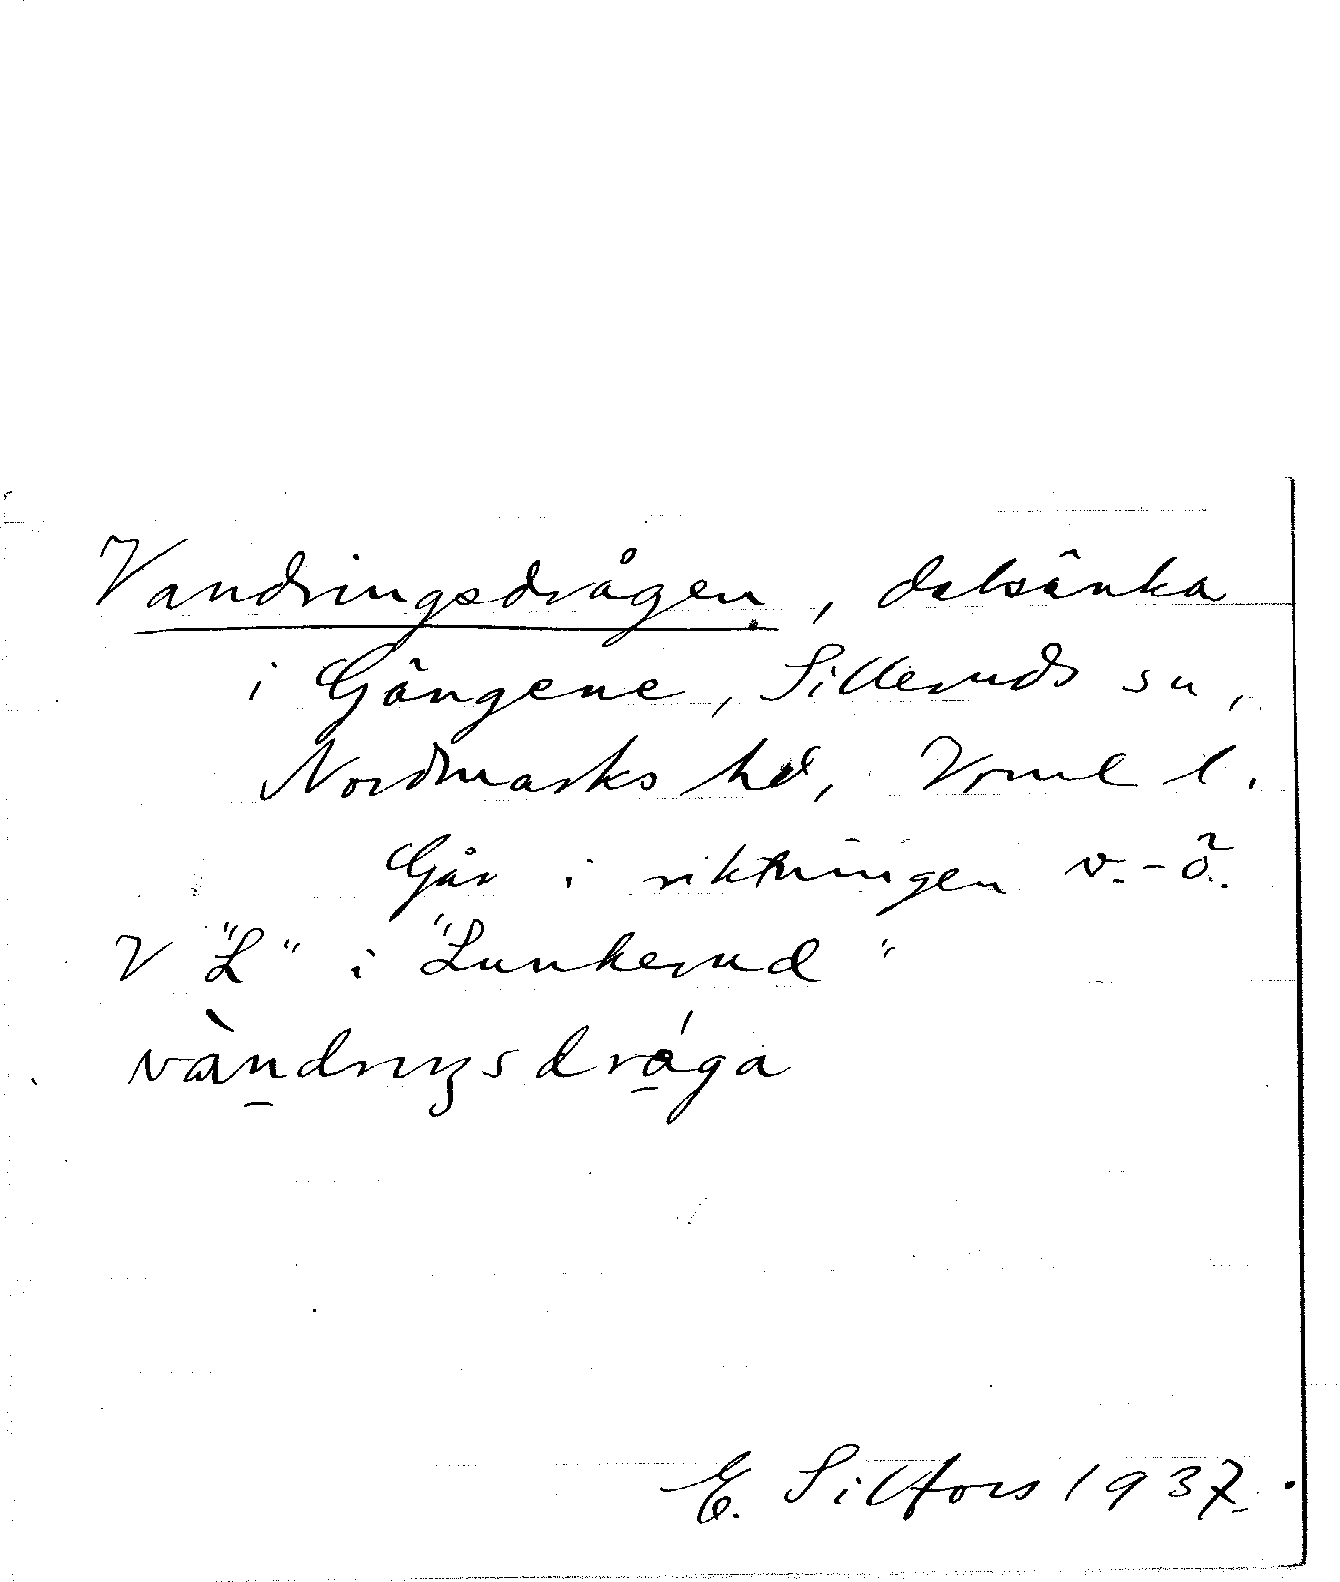 Vandringsdrågen, dalsänka
i Gängene, Silleruds sn,
Nordmarks hd, Vrml l.
Går i riktningen v.-ö.
V "L" i "Lunkerud"
vàndrıŋsdrága
E. Silfors 1937.